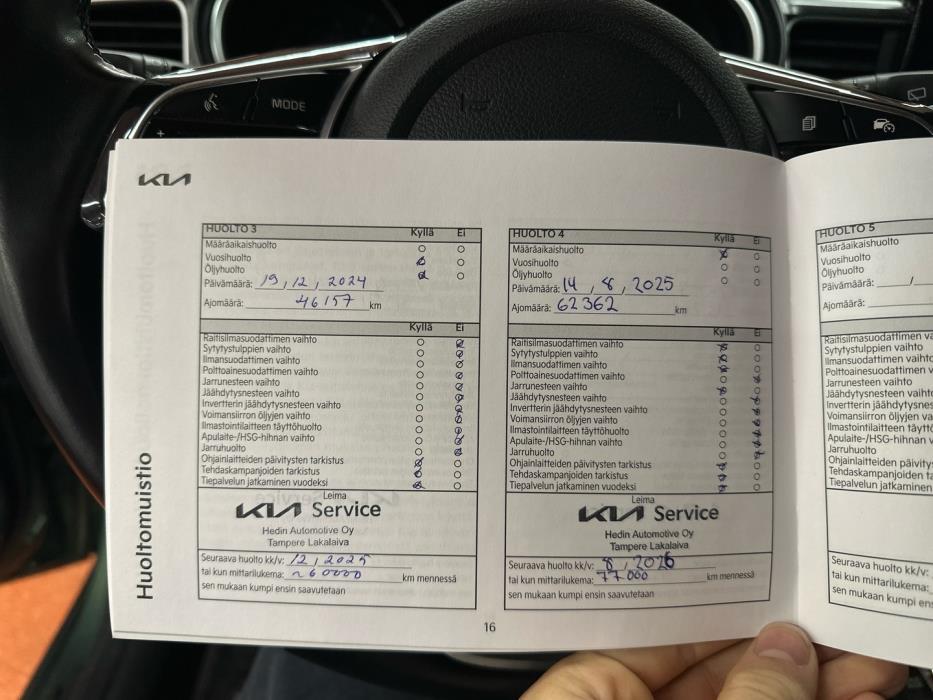 MODE
KIA
Huoltomuistio
HUOLTO 3
Kyllä Ei
Määräaikaishuolto
Vuosihuolto
Öljyhuolto
Päivämäärä: 19, 12, 2024
Ajomäärä: 46157 km
Kyllä Ei
Raitisilmasuodattimen vaihto
Sytytystulppien vaihto
Ilmansuodattimen vaihto
Polttoainesuodattimen vaihto
Jarrunesteen vaihto
Jäähdytysnesteen vaihto
Invertterin jäähdytysnesteen vaihto
Voimansiirron öljyjen vaihto
Ilmastointilaitteen täyttöhuolto
Apulaite-/HSG-hihnan vaihto
Jarruhuolto
Ohjainlaitteiden päivitysten tarkistus
Tehdaskampanjoiden tarkistus
Tiepalvelun jatkaminen vuodeksi
Leima
KIA Service
Hedin Automotive Oy
Tampere Lakalaiva
Seuraava huolto kk/v: 12, 2025
tai kun mittarilukema: ~60000 km mennessä
sen mukaan kumpi ensin saavutetaan
HUOLTO 4
Kyllä Ei
Määräaikaishuolto
Vuosihuolto
Öljyhuolto
Päivämäärä: 14, 8, 2025
Ajomäärä: 62362 km
Kyllä Ei
Raitisilmasuodattimen vaihto
Sytytystulppien vaihto
Ilmansuodattimen vaihto
Polttoainesuodattimen vaihto
Jarrunesteen vaihto
Jäähdytysnesteen vaihto
Invertterin jäähdytysnesteen vaihto
Voimansiirron öljyjen vaihto
Ilmastointilaitteen täyttöhuolto
Apulaite-/HSG-hihnan vaihto
Jarruhuolto
Ohjainlaitteiden päivitysten tarkistus
Tehdaskampanjoiden tarkistus
Tiepalvelun jatkaminen vuodeksi
Leima
KIA Service
Hedin Automotive Oy
Tampere Lakalaiva
Seuraava huolto kk/v: 8, 2026
tai kun mittarilukema: 77000 km mennessä
sen mukaan kumpi ensin saavutetaan
HUOLTO 5
Määräaikaishuolto
Vuosihuolto
Öljyhuolto
Päivämäärä: /
Ajomäärä:
Raitisilmasuodattimen vaihto
Sytytystulppien vaihto
Ilmansuodattimen vaihto
Polttoainesuodattimen v
Jarrunesteen vaihto
Jäähdytysnesteen vaiht
Invertterin jäähdytysnes
Voimansiirron öljyjen va
Ilmastointilaitteen täytt
Apulaite-/HSG-hihnan v
Jarruhuolto
Ohjainlaitteiden päivity
Tehdaskampanjoiden ta
Tiepalvelun jatkaminen
Seuraava huolto kk/v:
tai kun mittarilukema:
sen mukaan kumpi ens
16